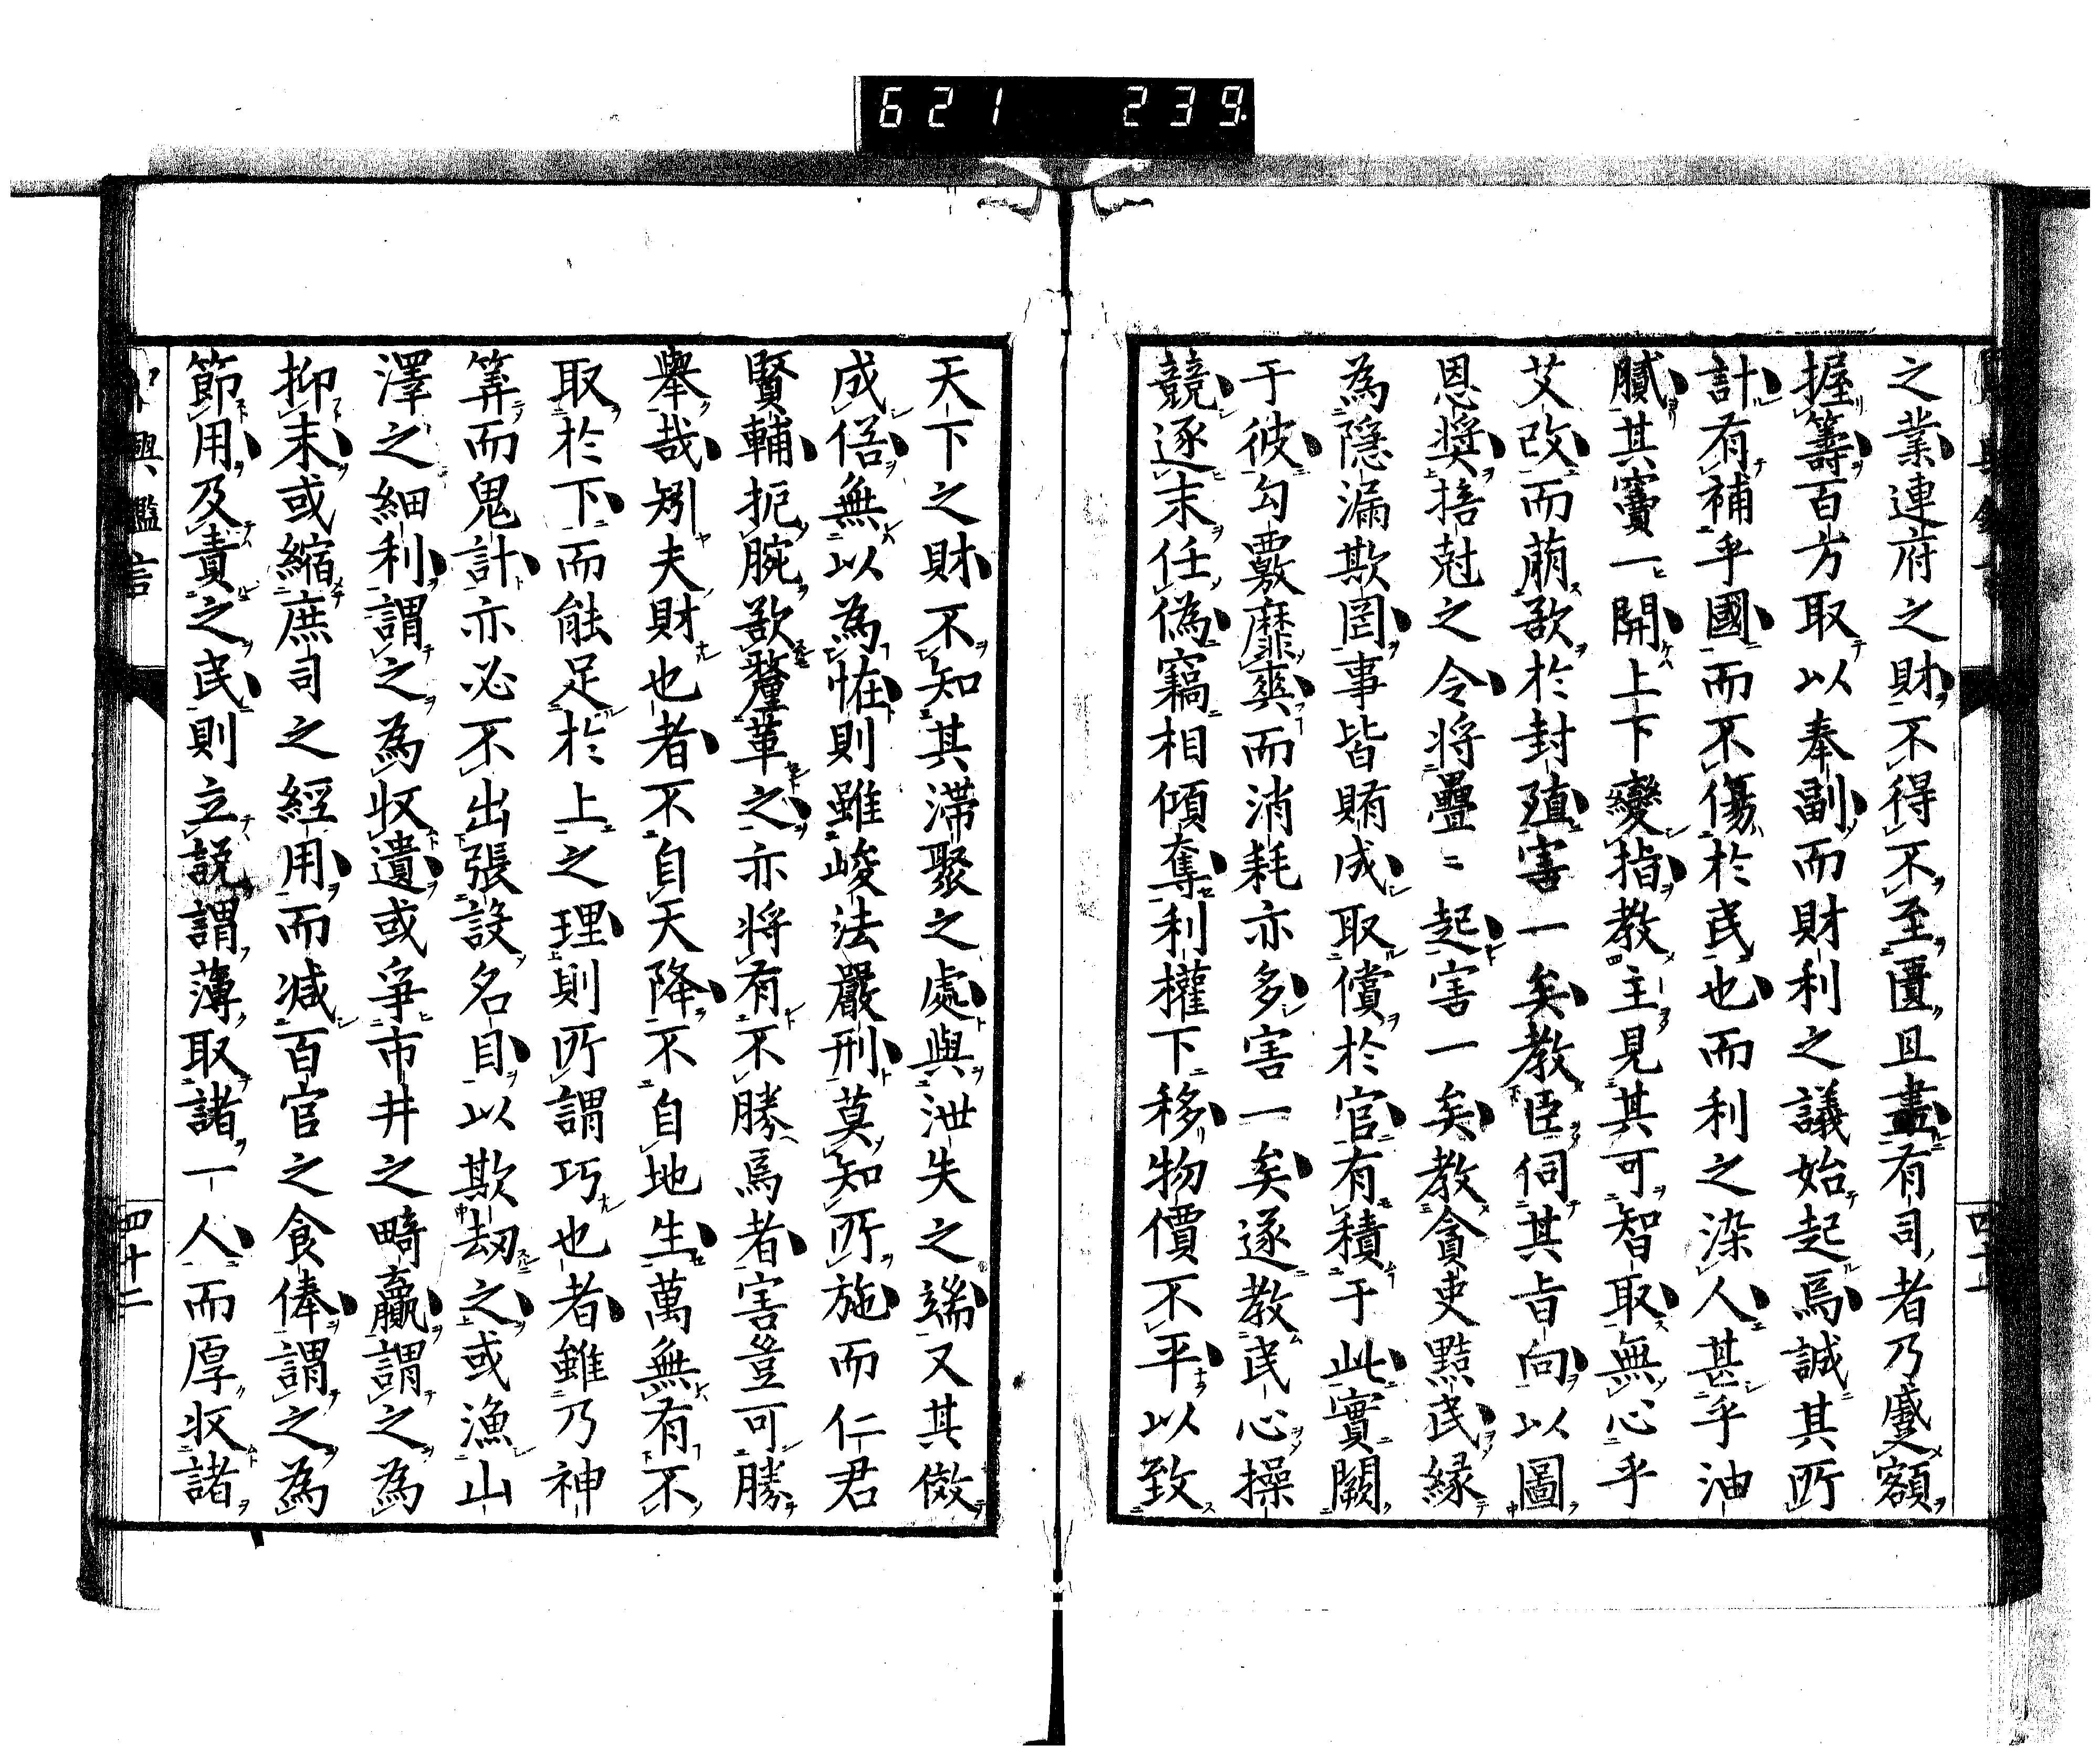 621 239
之業連府之財不得不至匱且盡有司者乃蹙額
握籌百方取以奉副而財利之議始起焉誠其所
計有補乎國而不傷於民也而利之染人甚乎油
膩其竇一開上下變指教主見其可智取無心乎
艾改而萠欲於封殖害一矣教臣伺其旨向以圖
恩奬掊尅之令將疊〻起害一矣教貪吏黠民緣
為隱漏欺罔事皆賄成取償於官有積于此實闕
于彼勾覈靡爽而消耗亦多害一矣遂教民心操
競逐末任偽竊相傾奪利權下移物價不平以致
天下之財不知其滯聚之處與泄失之端又其儆
成俖無以為恠則雖峻法嚴刑莫知所施而仁君
賢輔扼腕欲釐革之亦將有不勝焉者害豈可勝
舉哉矧夫財也者不自天降不自地生萬無有不
取於下而能足於上之理則所謂巧也者雖乃神
筭而鬼計亦必不出張設名目以欺刼之或漁山
澤之細利謂之為收遺或爭市井之畸贏謂之為
抑末或縮庶司之經用而减百官之食俸謂之為
節用及責之民則立説謂薄取諸一人而厚收諸
中興鑑言
四十二